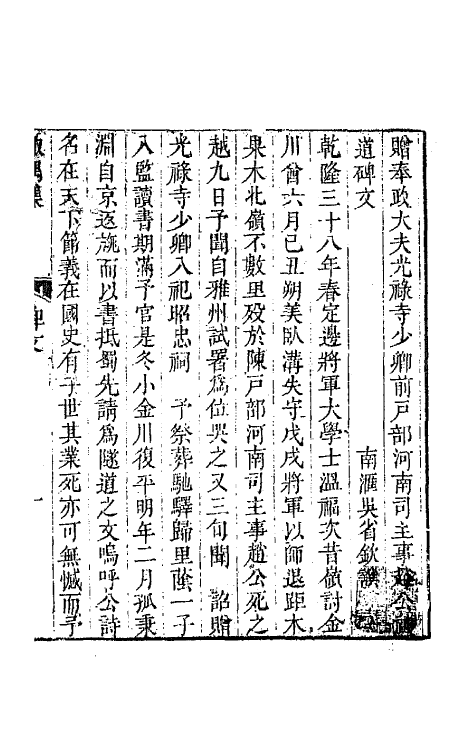 贈奉政大夫光祿寺少卿前戸部河南司主事趙公神
道碑文　南滙吳省欽譔
乾隆三十八年春定邊將軍大學士溫福次昔嶺討金
川酋六月己丑朔美臥溝失守戊戌將軍以師退距木
果木北嶺不數里歿於陳戸部河南司主事趙公死之
越九日予聞自雅州試署爲位哭之又三旬聞　詔贈
光祿寺少卿入祀昭忠祠　予祭葬馳驛歸里蔭一子
入監讀書期滿予官是冬小金川復平明年二月孤秉
淵自京返旐而以書抵蜀先請爲隧道之文嗚呼公詩
名在天下節義在國史有子世其業死亦可無憾而予
集
碑文
一